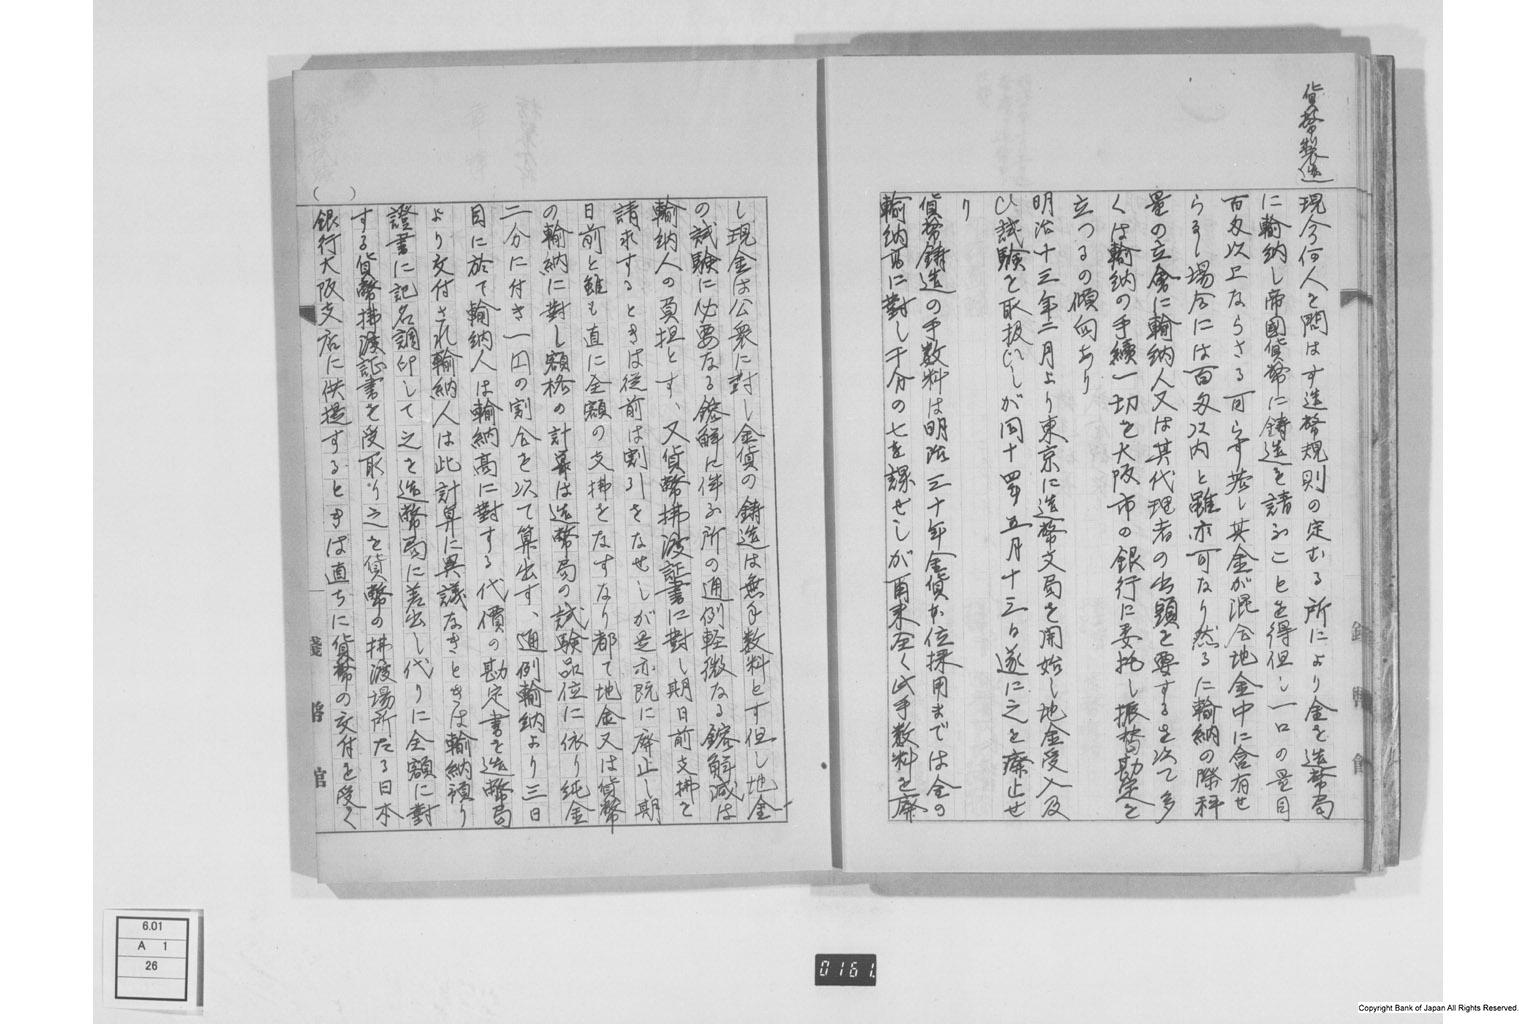 貨幣製造
現今何人を問はす造幣規則の定むる所により金を造幣局
に輸納し帝國貨幣に鋳造を請ふことを得但し一口の量目
百匁以上ならさる可らす若し其金が混合地金中に含有せ
らるゝ場合には百匁以内と雖亦可なり然るに輸納の際秤
量の立會に輸納人又は其代理者の出頭を要するを以て多
くは輸納の手續一切を大阪市の銀行に委托し振替勘定を
立つるの傾向あり
明治十三年二月より東京に造幣支局を開始し地金受入及
ひ試験を取扱ひしが同十四年五月十三日遂に之を廃止せ
り
貨幣鋳造の手数料は明治三十年金貨本位採用までは金の
輸納高に對し千分の七を課せしが爾来全く此手数料を廃
し現金は公衆に對し金貨の鋳造は無手数料とす但し地金
の試験に必要なる鎔解に伴ふ所の通例軽微なる鎔解減は
輸納人の負担とす、又貨幣拂渡証書に對し期日前支拂を
請求するときは従前は割引をなせしが是亦既に廃止し期
日前と雖も直に全額の支拂をなすなり都て地金又は貨幣
の輸納に對し額格の計算は造幣局の試験品位に依り純金
二分に付き一円の割合を以て算出す、通例輸納より三日
目に於て輸納人は輸納高に對する代價の勘定書を造幣局
より交付され輸納人は此計算に異議なきときは輸納預り
證書に記名調印して之を造幣局に差出し代りに全額に對
する貨幣拂渡証書を受取り之を貨幣の拂渡場所たる日本
銀行大阪支店に供提するときは直ちに貨幣の交付を受く
( )
銭幣館
錢幣館
6.01
A 1
26
0161.
Copyright Bank of Japan All Rights Reserved.